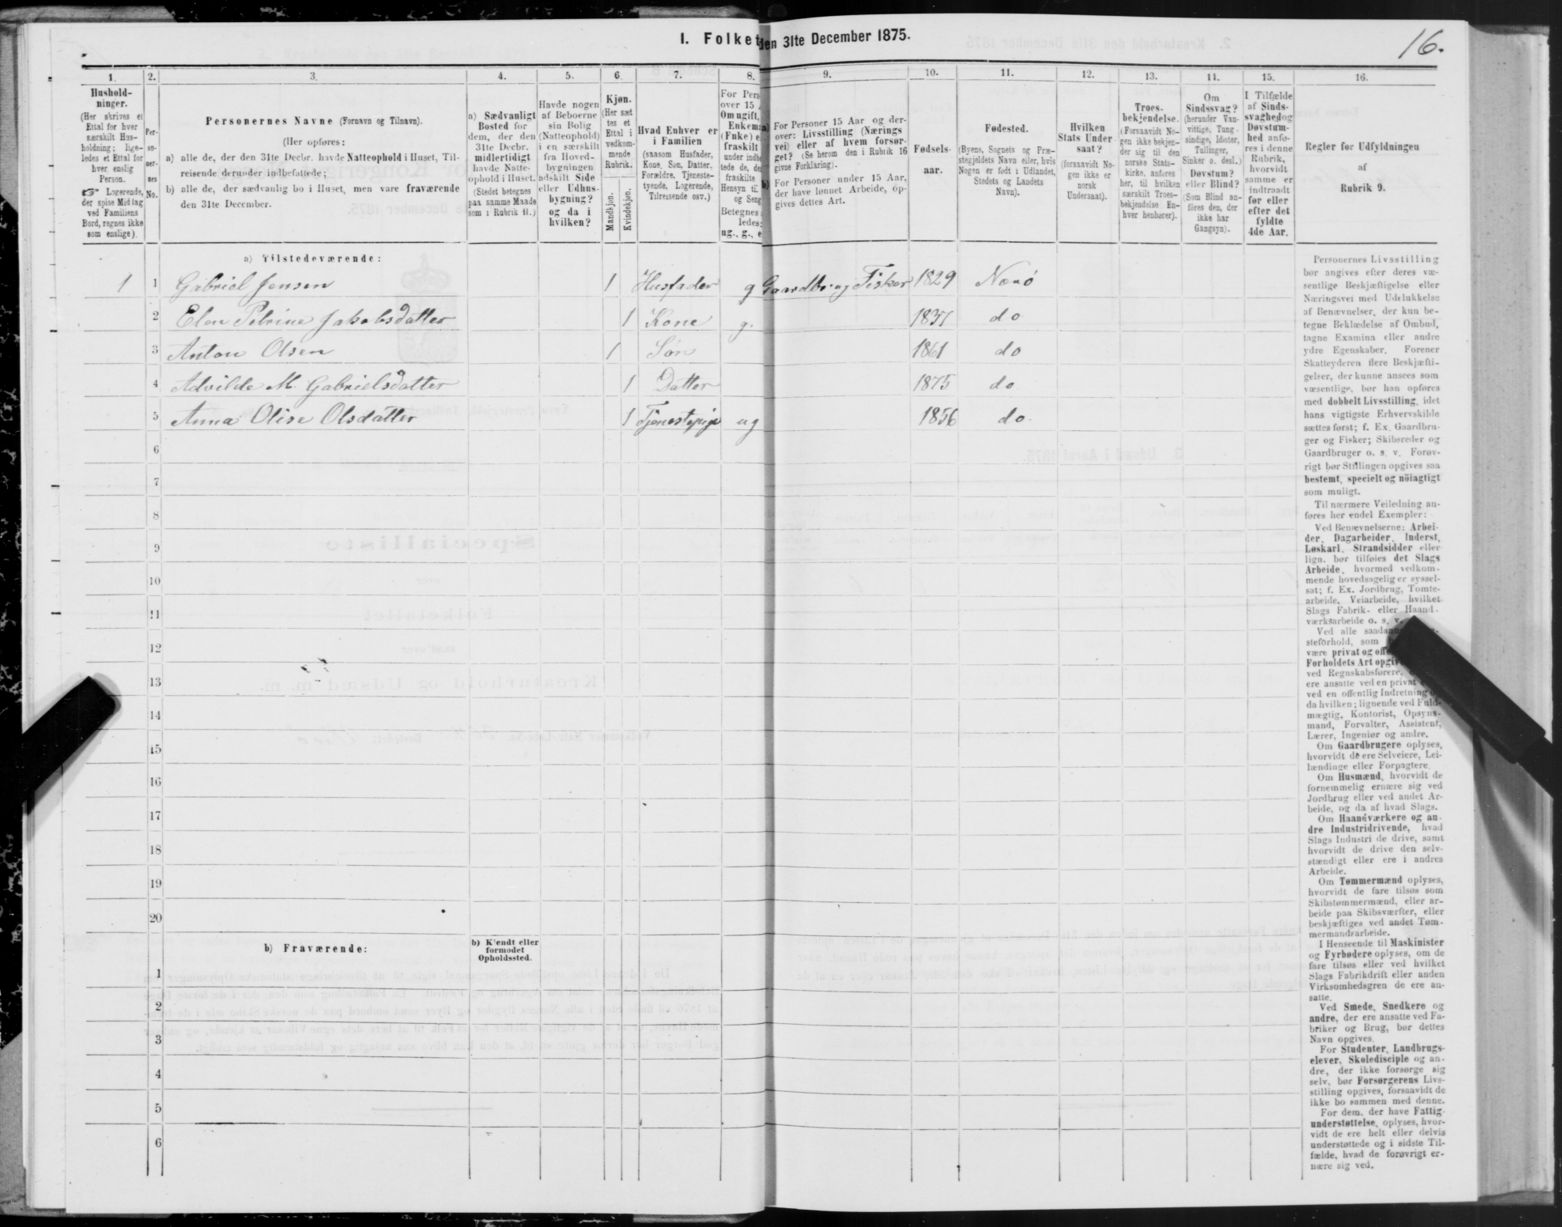 I. Folket
den 31te December 1875.
16.
1.
2.
3.
4.
5.
6.
7.
8.
9.
10.
11.
12.
13.
14.
15.
16.
Hushold-
ninger.
(Her skrives et
Ettal for hver
særskilt Hus-
holdning; lige-
ledes et Ettal for
hver enslig
Person.
☞ Logerende,
der spise Middag
ved Familiens
Bord, regnes ikke
som enslige).
Per-
soner-
nes
No.
Personernes Navne (Fornavn og Tilnavn).
(Her opføres:
a) alle de, der den 31te Decbr. havde Natteophold i Huset, Til-
reisende derunder indbefattede;
b) alle de, der sædvanlig bo i Huset, men vare fraværende
den 31te December.
a) Sædvanligt
Bosted for
dem, der den
31te Decbr.
midlertidigt
havde Natte-
ophold i Huset.
(Stedet betegnes
paa samme Maade
som i Rubrik 11.)
Havde nogen
af Beboerne
sin Bolig
(Natteophold)
i en særskilt
fra Hoved-
bygningen
adskilt Side-
eller Udhus-
bygning?
og da i
hvilken?
Kjøn.
(Her sæt-
tes et
Ettal i
vedkom-
mende
Rubrik.
Mandkjøn.
Kvindekjøn.
Hvad Enhver er
i Familien
(saasom Husfader,
Kone, Søn, Datter,
Forældre, Tjeneste-
tyende, Logerende,
Tilreisende osv.)
For Pers
over 15
Om ugift,
Enkem
(Fnke) e
fraskilt
Betegnes
ledes:
ug., g., e
a) For Personer 15 Aar og der-
over: Livsstilling (Nærings
vei) eller af hvem forsør-
get? (Se herom den i Rubrik 16
givne Forklaring).
b) For Personer under 15 Aar,
der have lønnet Arbeide, op-
gives dettes Art.
Fødsels-
aar.
Fødested.
(Byens, Sognets og Præ-
stegjeldets Navn eller, hvis
Nogen er født i Udlandet,
Stedets og Landets
Navn).
Hvilken
Stats Under-
saat?
(forsaavidt No-
gen ikke er
norsk
Undersaat).
Troes-
bekjendelse.
(Forsaavidt No-
gen ikke bekjen-
der sig til den
norske Stats-
kirke, anføres
her, til hvilken
særskilt Troes-
bekjendelse En-
hver henhører).
Om
Sindssvag?
(herunder Van-
vittige, Tung-
sindige, Idioter,
Tullinger,
Sinker o. desl.)
Døvstum?
eller Blind?
(Som Blind an-
føres den, der
ikke har
Gangsyn).
I Tilfælde
af Sinds-
svaghed og
Døvstum-
hed anfø-
res i denne
Rubrik,
hvorvidt
samme er
indtraadt
før eller
efter det
fyldte
4de Aar.
Regler for Udfyldningen
af
Rubrik 9.
a) Tilstedeværende:
1 1 Gabriel Jensen 1 Husfader g Gaardbr. og Fisker 1829 Nærø
2 Elen Petrine Jakobsdatter 1 Kone g. do
3 Anton Olsen 1 Søn 1861 do
4 Advilde M. Gabrielsdatter 1 Datter 1875 do
5 Anna Olise Olsdatter 1 Tjenestepige ug 1856 do
6
7
8
9
10
11
12
13
14
15
16
17
18
19
20
b) Fraværende:
b) Kjendt eller
formodet
Opholdssted.
1
2
3
4
5
6
Personernes Livsstilling
bør angives efter deres væ-
sentlige Beskjæftigelse eller
Næringsvei med Udelukkelse
af Benævnelser, der kun be-
tegne Beklædelse af Ombud,
tagne Examina eller andre
ydre Egenskaber. Forener
Skatteyderen flere Beskjæfti-
gelser, der kunne ansees som
væsentlige, bør han opføres
med dobbelt Livsstilling, idet
hans vigtigste Erhvervskilde
sættes først; f. Ex. Gaardbru-
ger og Fisker; Skibsreder og
Gaardbruger o. s. v. Forøv-
rigt bør Stillingen opgives saa
bestemt, specielt og nöiagtigt
som muligt.
Til nærmere Veiledning an-
føres her endel Exempler:
Ved Benævnelserne: Arbei-
der, Dagarbeider, Inderst,
Løskarl, Strandsidder eller
lign. bør tilføies det Slags
Arbeide, hvormed vedkom-
mende hovedsagelig er syssel-
sat; f. Ex. Jordbrug, Tomte-
arbeide, Veiarbeide, hvilket
Slags Fabrik- eller Haand-
værksarbeide o. s. v.
Ved alle saadan
steforhold, som
være privat og off
Forholdets Art opgiv
ved Regnskabsførere,
ere ansatte ved en privat
ved en offentlig Indretning
da hvilken; lignende ved Fuld-
mægtig, Kontorist, Opsyns-
mand, Forvalter, Assistent,
Lærer, Ingeniør og andre.
Om Gaardbrugere oplyses,
hvorvidt de ere Selveiere, Lei-
lændinge eller Forpagtere.
Om Husmænd, hvorvidt de
fornemmelig ernære sig ved
Jordbrug eller ved andet Ar-
beide, og da af hvad Slags.
Om Haandværkere og an-
dre Industridrivende, hvad
Slags Industri de drive, samt
hvorvidt de drive den selv-
stændigt eller ere i andres
Arbeide.
Om Tømmermænd oplyses,
hvorvidt de fare tilsøs som
Skibstømmermænd, eller ar-
beide paa Skibsværfter, eller
beskjæftiges ved andet Tøm-
mermandsarbeide.
I Henseende til Maskinister
og Fyrbødere oplyses, om de
fare tilsøs eller ved hvilket
Slags Fabrikdrift eller anden
Virksomhedsgren de ere an-
satte.
Ved Smede, Snedkere og
andre, der ere ansatte ved Fa-
briker og Brug, bør dettes
Navn opgives.
For Studenter, Landbrugs-
elever, Skoledisciple og an-
dre, der ikke forsørge sig
selv, bør Forsørgerens Livs-
stilling opgives, forsaavidt de
ikke bo sammen med denne.
For dem, der have Fattig-
understøttelse, oplyses, hvor-
vidt de ere helt eller delvis
understøttede og i sidste Til-
fælde, hvad de forøvrigt er-
nære sig ved.